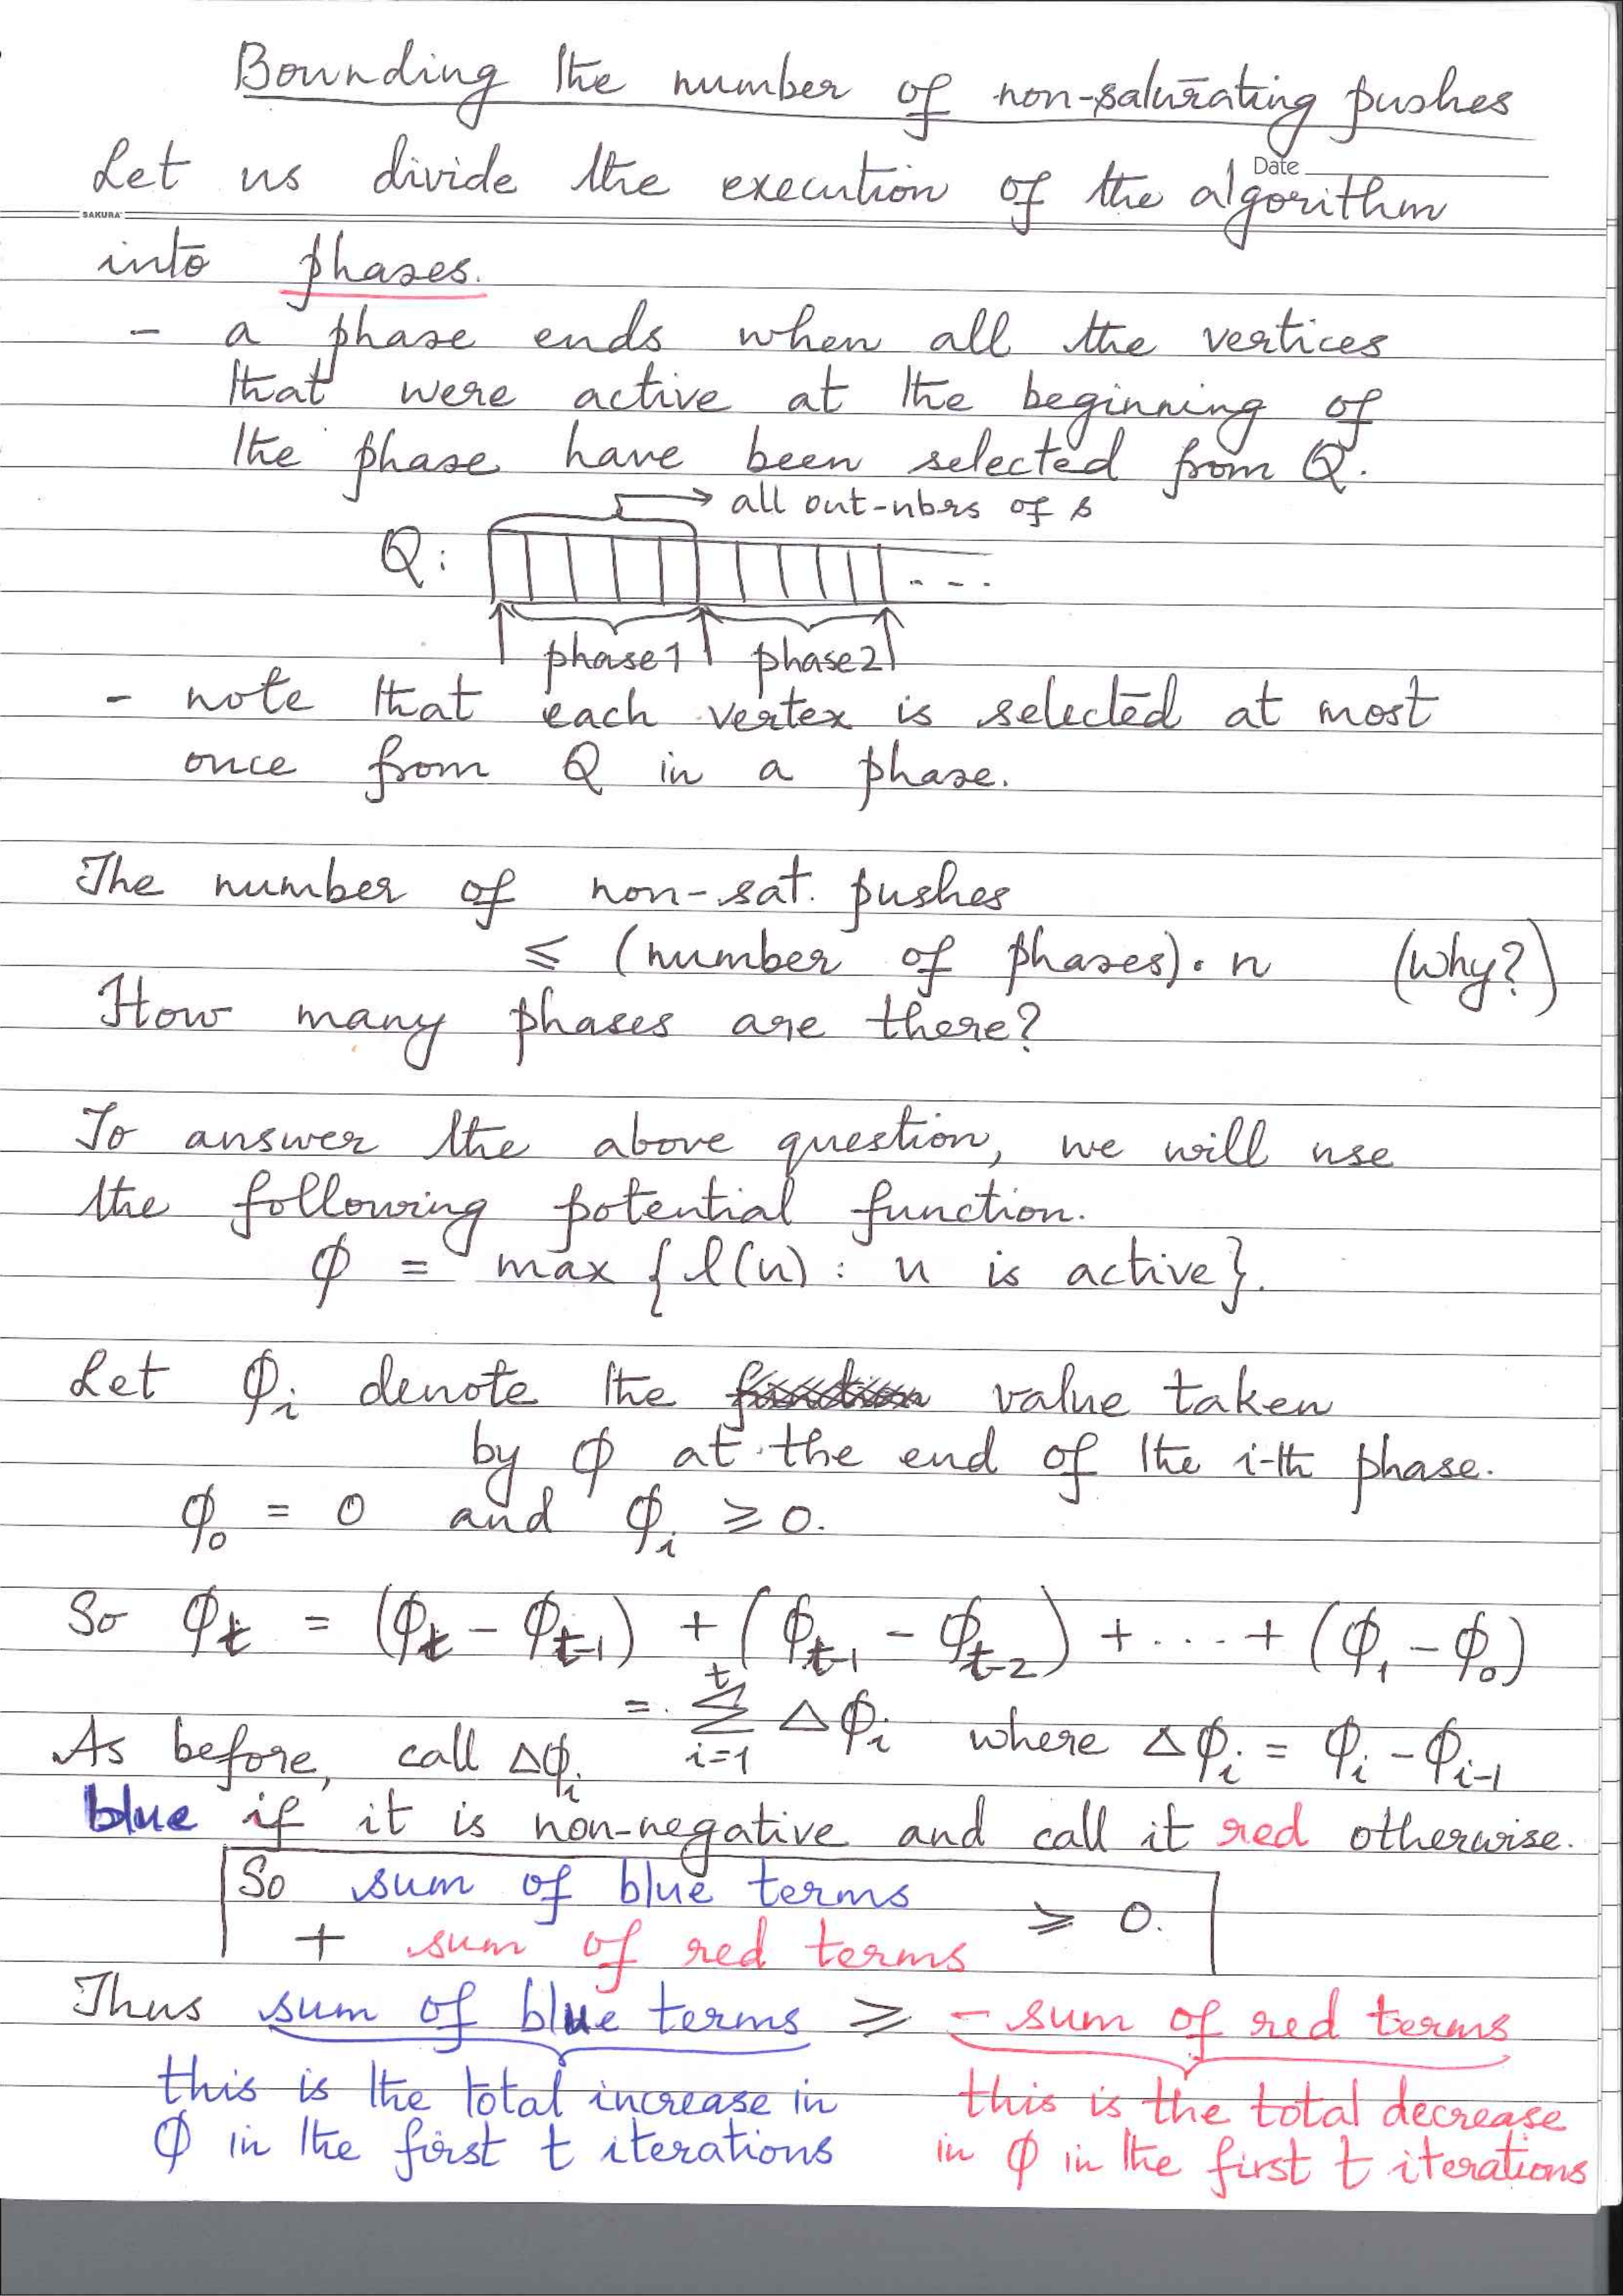 Bounding the number of non-saturating pushes
Date
Let us divide the execution of the algorithm
SAKURA
into phases.
- a phase ends when all the vertices
that were active at the beginning of
the phase have been selected from Q.
→ all out-nbrs of s
Q: ...
phase1 phase2
- note that each vertex is selected at most
once from Q in a phase.
The number of non-sat. pushes
≤ (number of phases). n (why?)
How many phases are there?
To answer the above question, we will use
the following potential function.
ϕ = max {l(u) : u is active}.
Let ϕ_i denote the value taken
by ϕ at the end of the i-th phase.
ϕ_0 = 0 and ϕ_i ≥ 0.
So ϕ_t = (ϕ_t - ϕ_{t-1}) + (ϕ_{t-1} - ϕ_{t-2}) + ... + (ϕ_1 - ϕ_0)
= ∑_{i=1}^{t} Δϕ_i where Δϕ_i = ϕ_i - ϕ_{i-1}
As before, call Δϕ_i
blue if it is non-negative and call it red otherwise.
So sum of blue terms
+ sum of red terms ≥ 0.
Thus sum of blue terms ≥ - sum of red terms
this is the total increase in
ϕ in the first t iterations
this is the total decrease
in ϕ in the first t iterations